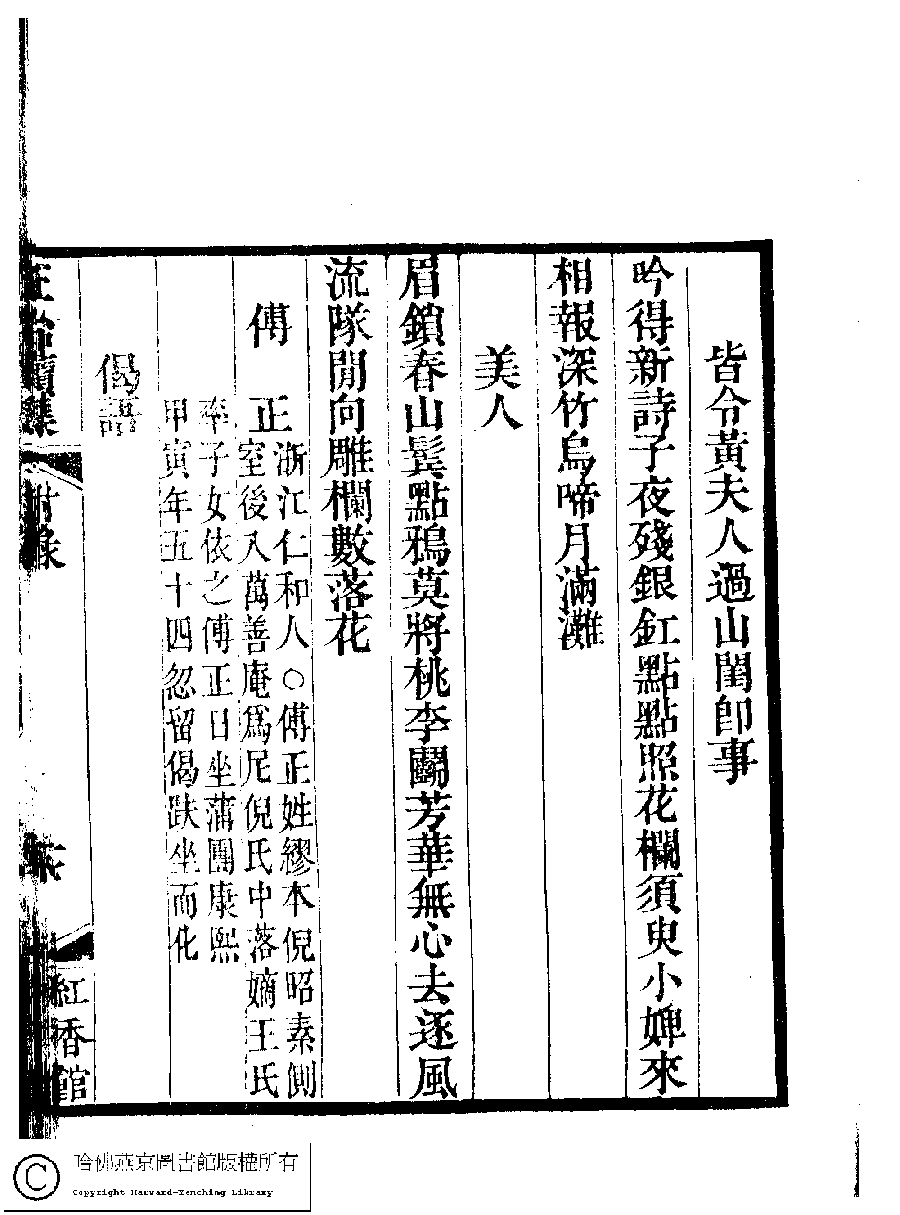 皆令黃夫人過山閨卽事
吟得新詩子夜殘銀釭點點照花欄須臾小婢來
相報深竹烏啼月滿灘
美人
眉鎖春山鬂點鴉莫將桃李鬭芳華無心去逐風
流隊閒向雕欄數落花
傅正
浙江仁和人○傅正姓繆本倪昭素側
室後入萬善庵爲尼倪氏中落嫡王氏
率子女依之傅正日坐蒲團康熙
甲寅年五十四忽留偈趺坐而化
偈語
續集
附錄
紅香館
哈佛燕京圖書館版權所有
Copyright Harvard-Yenching Library